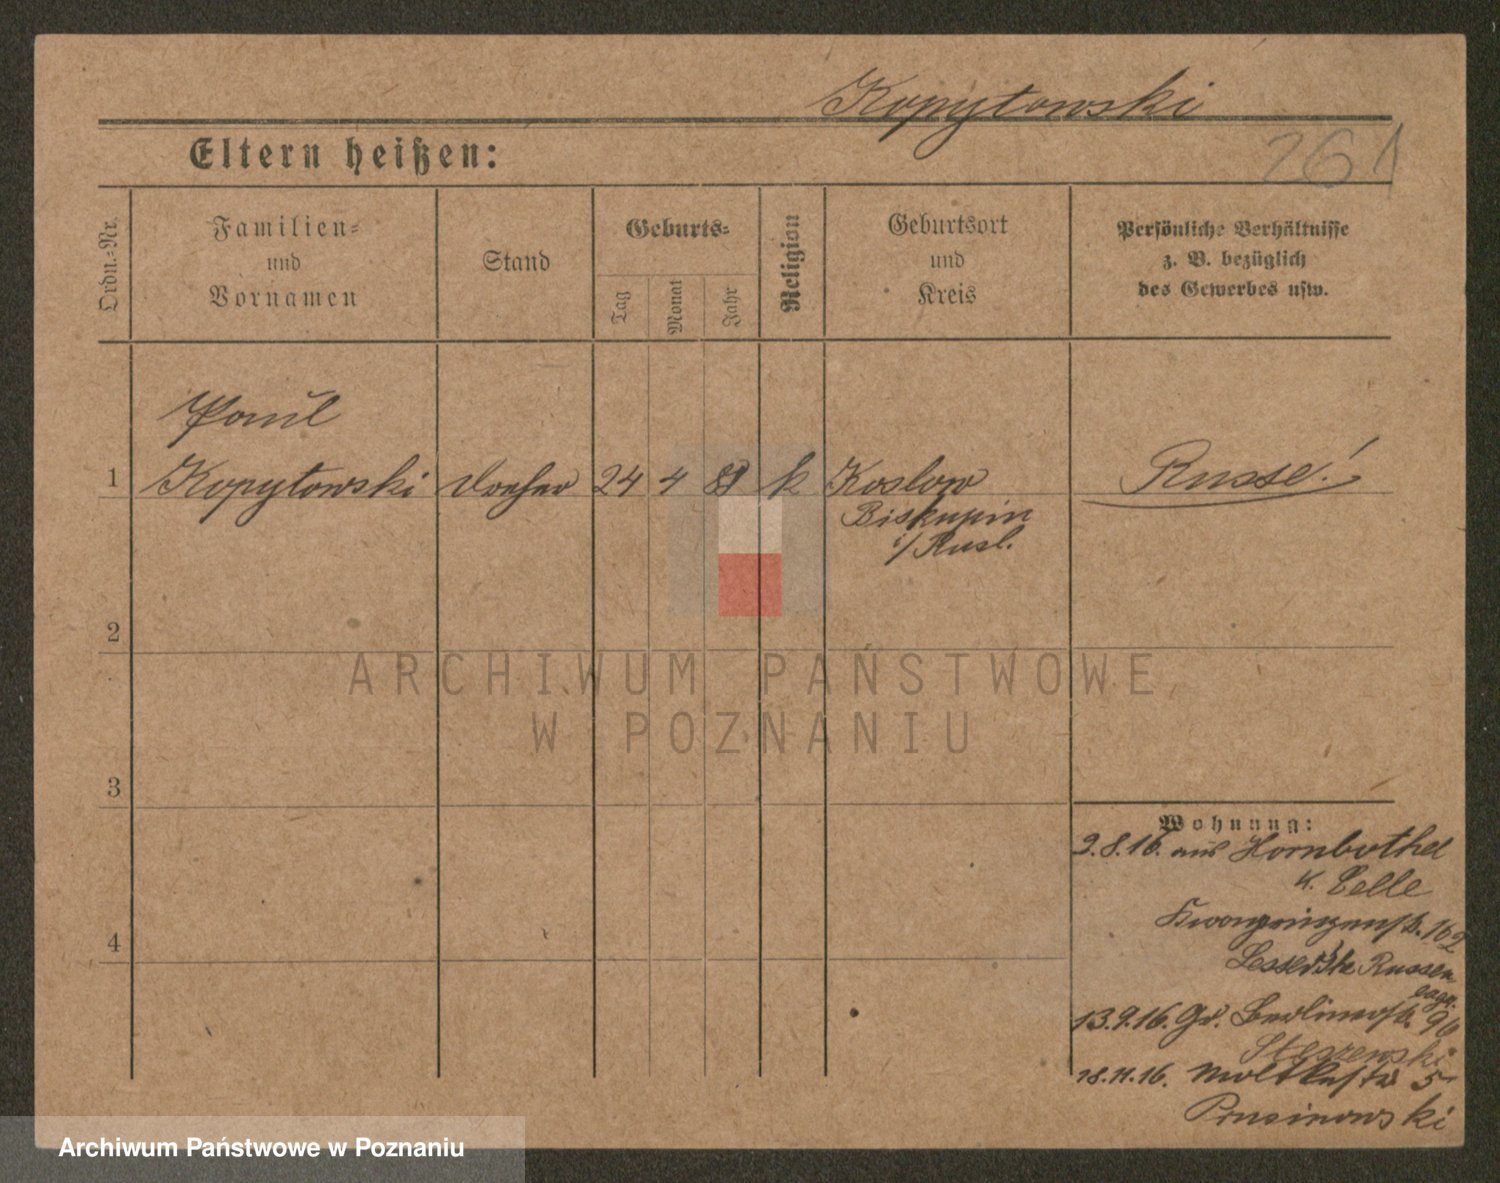 Kopytowski
Eltern heißen:
261
Ordn.-Nr.
Familien-
und
Vornamen
Stand
Geburts-
Tag
Monat
Jahr
Religion
Geburtsort
und
Kreis
Persönliche Verhältnisse
z. B. bezüglich
des Gewerbes usw.
Paul
1 Kopytowski Dreher 24 4 k Koslow Russe!
Biskupin
i/Rusl.
2
3
4
Wohnung:
2.8.16. aus Hornbostel
Celle
Kronprinzenstr. 162
Russen
lager
13.9.16. Gr. Berlinerstr. 96
Steszewski
18.11.16. Moltkestr 5
Prusinowski
ARCHIWUM PAŃSTWOWE
W POZNANIU
Archiwum Państwowe w Poznaniu